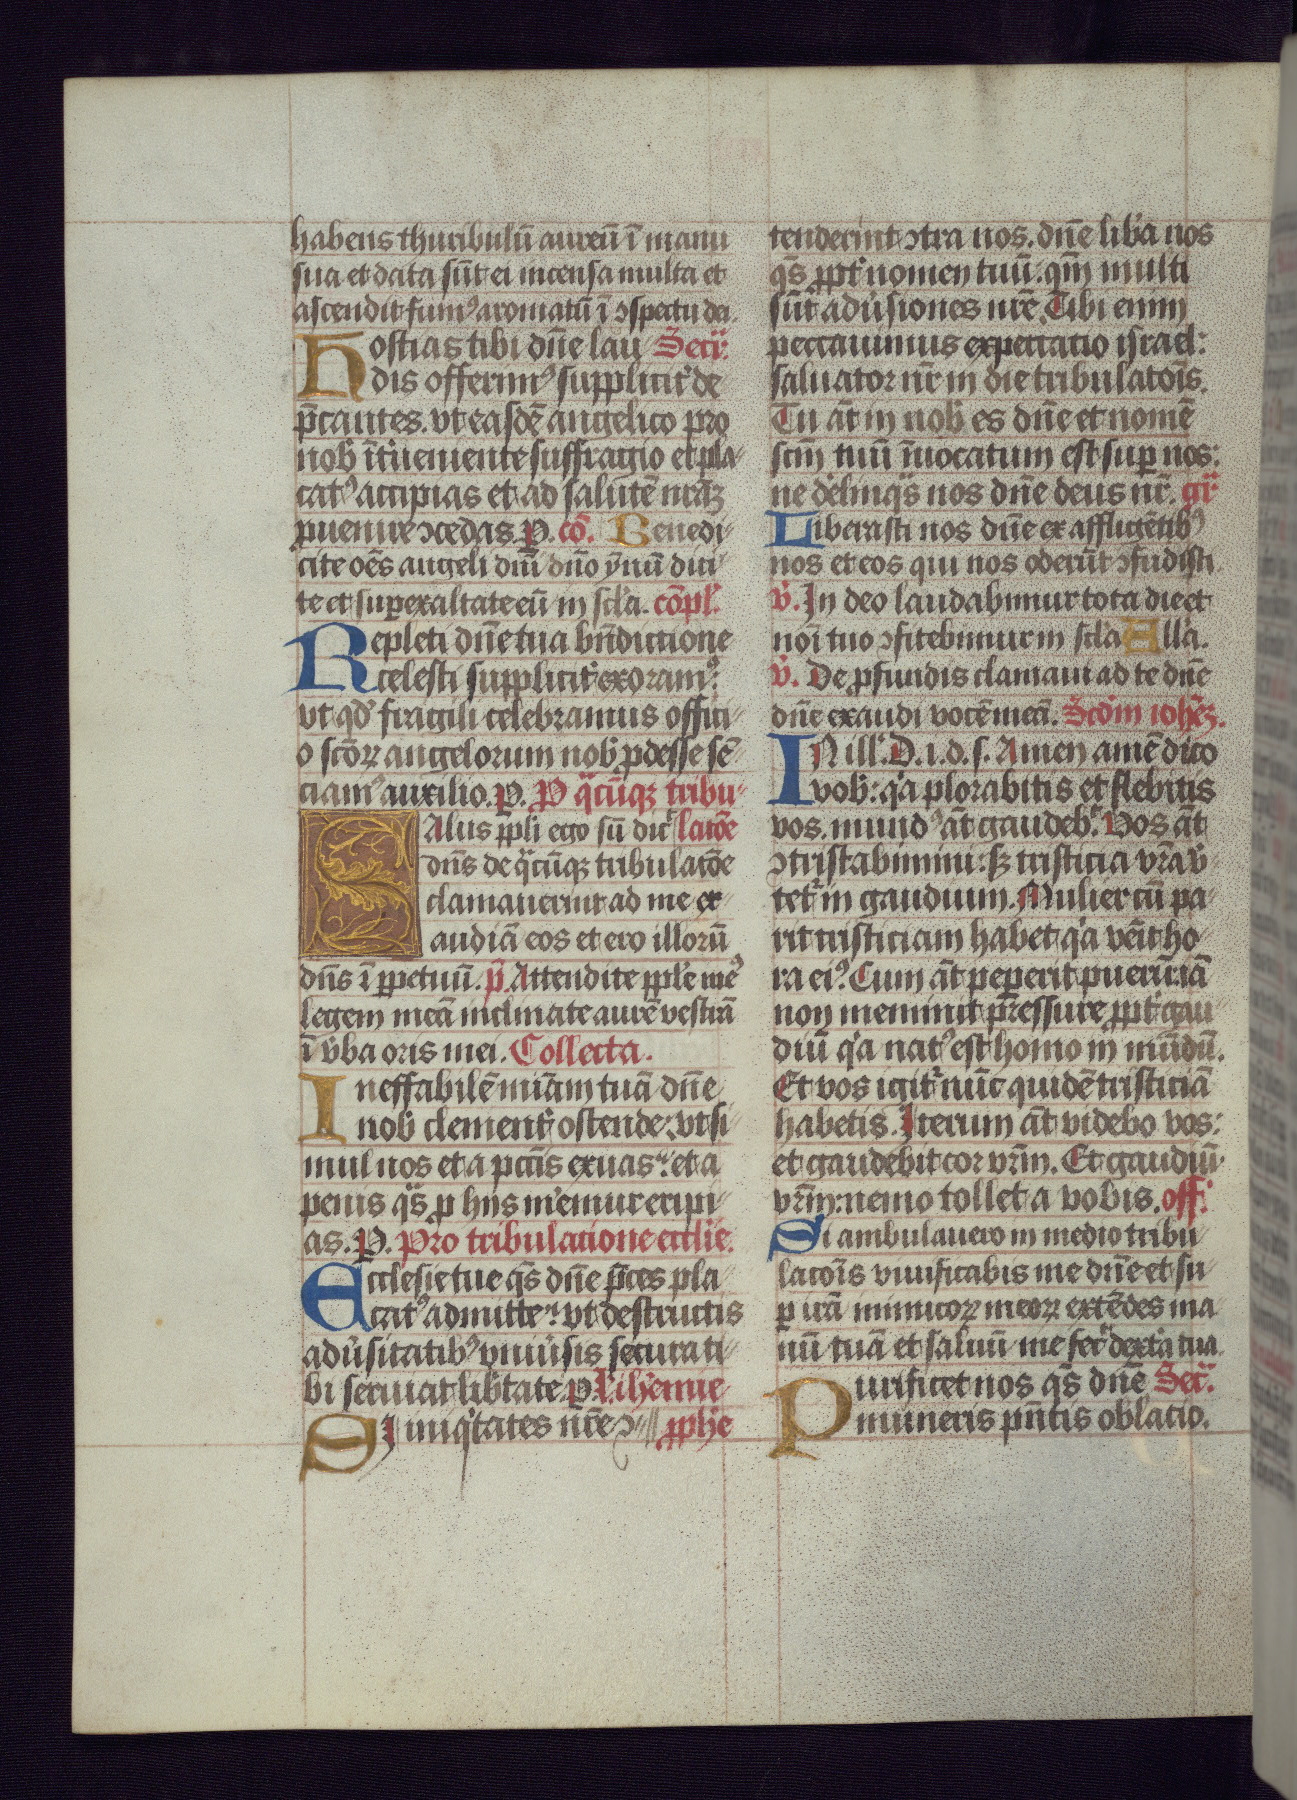 habens thuribulū aureū ī manu
sua et data sūt ei incensa multa et
ascendit fumꝰ aromatū ī ↄspectu dei.
Hostias tibi dn̄e lau Secr̄.
dis offerimꝰ supplicit᷑ de
p̄cantes. vt easdē angelico pro
nob̄ īt᷑ueniente suffragio et pla
catꝰ accipias et ad salutē nr̄aꝫ
ꝓuenire ↄcedas. P. cō. Benedi
cite oēs angeli dn̄i dn̄o ẏnū dici
te et superexaltate eū in scl̄a. cōpl᷑.
Repleti dn̄e tua bn̄dictione
celesti supplicit᷑ exoramꝰ:
vt qd̓ fragili celebramus offici
o scōꝝ angelorum nob̄ ꝓdesse sē
ciamꝰ auxilio. P. P q̄cūqꝫ tribu
Salus ppl̄i ego sū dic̄ lacōe
dn̄s de q̄cūqꝫ tribulacōe
clamauerint ad me ex
audiā eos et ero illorū
dn̄s ī ꝑpetuū. p̄. Attendite pple meꝰ
legem meā inclinate aurē vestrā
ī v̓ba oris mei. Collecta.
Ineffabilē mīam tuā dn̄e
nob̄ clement᷑ ostende: vt si
mul nos et a pcc̄is exuas: et a
penis q̄s ꝓ hijs m̓emur eripi
as. P. Pro tribulacione eccl̄ie.
Ecclesie tue q̄s dn̄e p̄ces pla
catꝰ admitte: vt destructis
adu̓sitatibꝰ vniu̓sis secura ti
bi seruiat lib̓tate. P. l. ih̓emie
Si iniq̓tates nr̄e ↄ ꝓph̄e
tenderint ↄtra nos. dn̄e lib̓a nos
q̄s ꝓpt᷑ nomen tuū. qm̄ multi
sūt adu̓siones nr̄e. Tibi enim
peccauimus expectatio israel:
saluator nr̄ in die tribulatoīs.
Tu āt in nob̄ es dn̄e et nomē
scm̄ tuū īuocatum est sup nos:
ne dēlinq̄s nos dn̄e deus nr̄. gr̄
Liberasti nos dn̄e ex affligētibꝰ
nos et eos qui nos oderūt ↄfudisti.
v̓. In deo laudabimur tota die et
noī tuo ↄfitebimur in scl̄a Alla.
v̓. De ꝓfundis clamaui ad te dn̄e
dn̄e exaudi vocē meā. Scdm̄ ioh̄eꝫ.
In ill᷑. D. i. d. s. Amen amē dico
vob̄: q̓a plorabitis et flebitis
vos. mundꝰ āt gaudeb᷑. Vos āt
ↄtristabimini: sꝫ tristicia vr̄a v̓
tet᷑ in gaudium. Mulier cū pa
rit tristiciam habet q̓a vēit ho
ra eiꝰ. Cum āt peperit puerū: iā
non meminit pressure ꝓpt᷑ gau
diū q̓a natꝰ est homo in mūdū.
Et vos igit᷑ nūc quidē tristiciā
habetis. Iterum āt videbo vos:
et gaudebit cor vr̄m. Et gaudiū
vr̄m: nemo tollet a vobis. off.
Si ambulauero in medio tribu
lacoīs viuificabis me dn̄e et su
ꝑ irā inimicoꝝ meoꝝ extēdes ma
nū tuā et saluū me fec̄ dext̓a tua.
Purificet nos q̄s dn̄e Secr̄.
muneris pn̄tis oblatio.